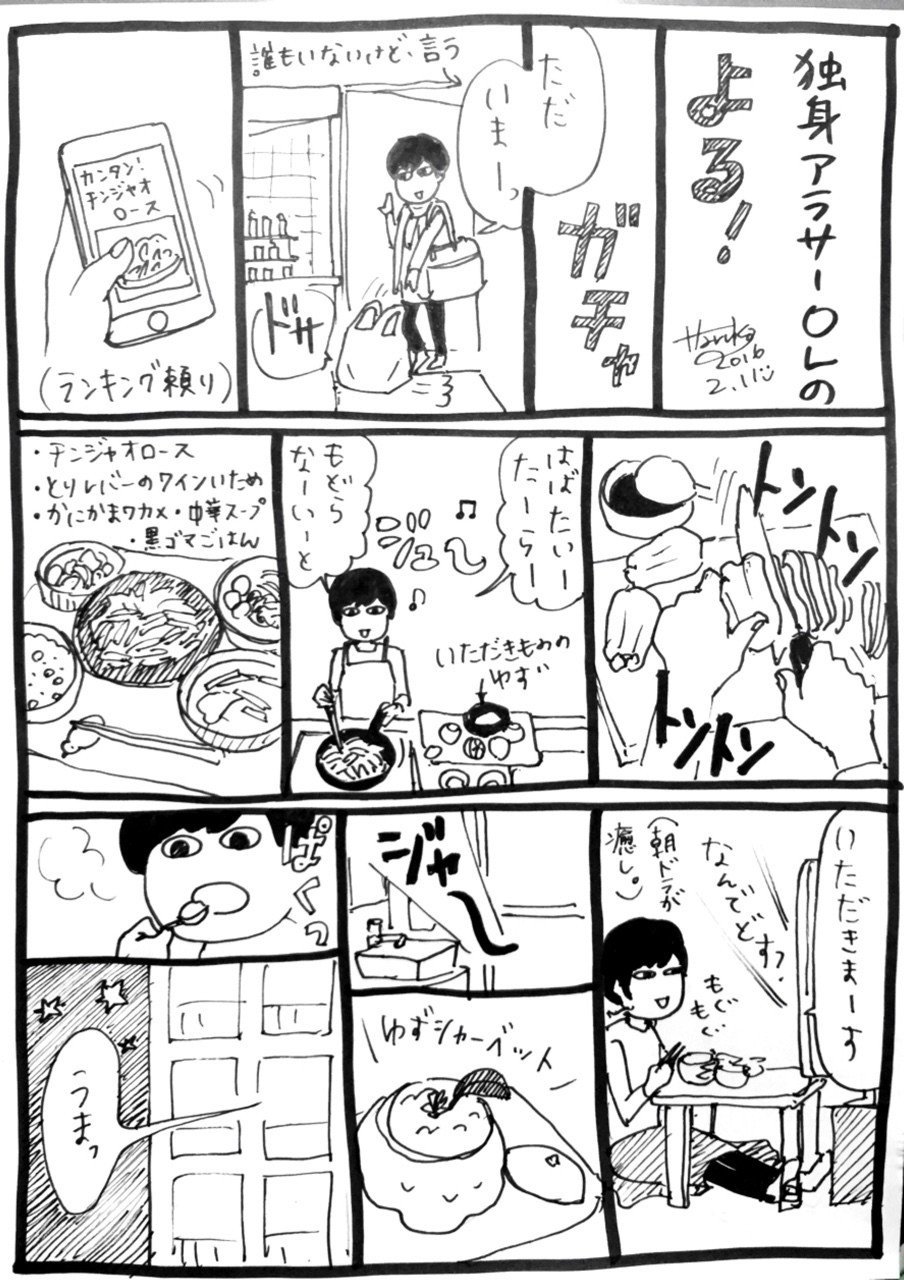 独身アラサーOLの
よる!
Haruko
2016
2.11
ガチャ
ただ
いまーっ
誰もいないけど、言う
ドサ
カンタン!
チンジャオ
ロース
(ランキング頼り)
トントン
トントン
はばたい
たーらー
ジュ〜
もどら
なーいーと
いただきものの
ゆず
・チンジャオロース
・とりレバーのワインいため
・かにかまワカメ・中華スープ
・黒ゴマごはん
いただきまーす
なんでどすっ?
(朝ドラが
癒し。)
もぐ
もぐ
ジャー
ゆずシャーベット
ぱくっ
うまっ